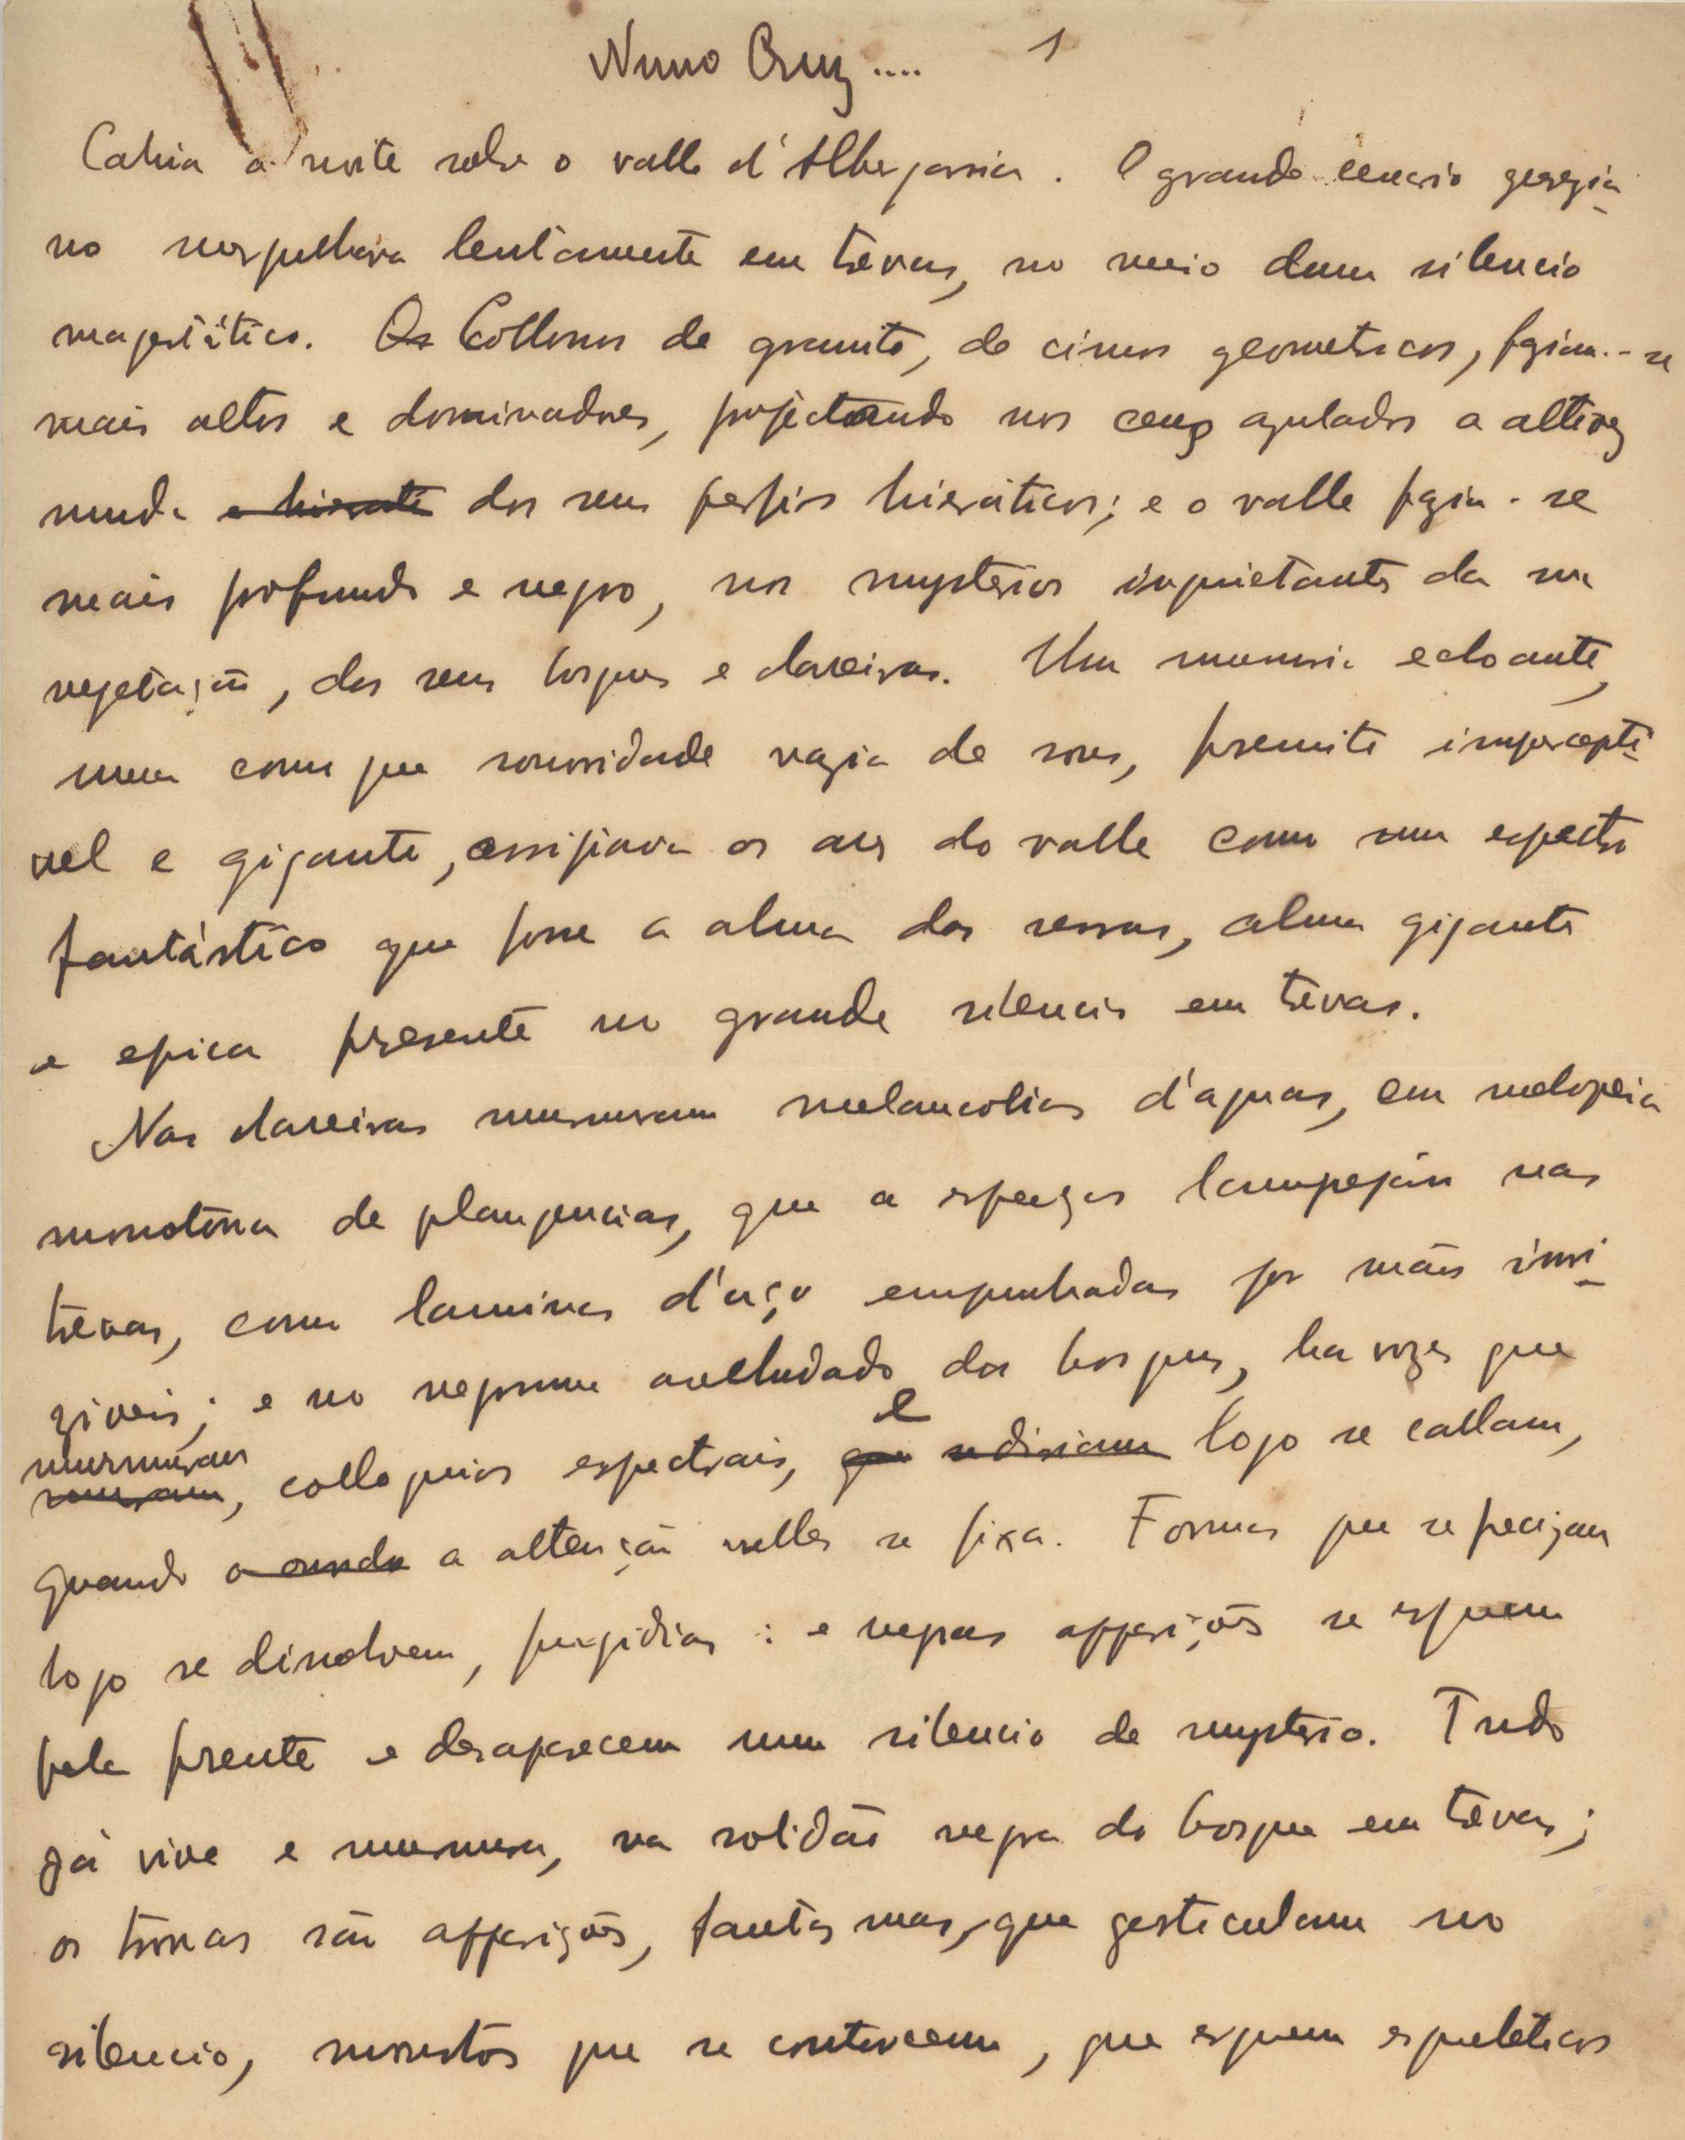 Nuno Cruz.... 1
Cahia a noite sobre o valle d'Albergaria. O grande cenario gerezia-
no mergulhava lentamente em trevas, no meio dum silencio
magestático. Os Collossos de granito, de cimos geometricos, faziam-se
mais altos e dominadores, projectando nos ceus azulados a altivez
muda e hierati dos seus perfis hieráticos; e o valle fazia-se
mais profundo e negro, nos mysterios inquietantes da sua
vegetação, dos seus bosques e clareiras. Um murmurio echoante,
numa como que sonoridade vazia de sons, fremito impercepti-
vel e gigante, arripiava os ares do valle como um espectro
fantástico que fosse a alma das serras, alma gigante
e epica presente no grande silencio em trevas.
Nas clareiras murmuram melancolias d'aguas, em melopeia
monotona de plangencias, que a espaços lampejam nas
trevas, como laminas d'aço empunhadas por mãos invi-
ziveis; e no negrume avelludado dos bosques, ha vozes que
murmuram
, colloquios espectrais, que e se dissiam logo se callam,
quando o ouvido a attenção nelles se fixa. Formas que se precizam
logo se dissolvem, fugidias: e negras apparições se erguem
pela frente e desaparecem num silencio de mysterio. Tudo
já vive e murmura, na solidão negra do bosque em trevas;
os troncos são apparições, fantasmas, que gesticulam no
silencio, monstros que se contorcem, que erguem esqueleticos